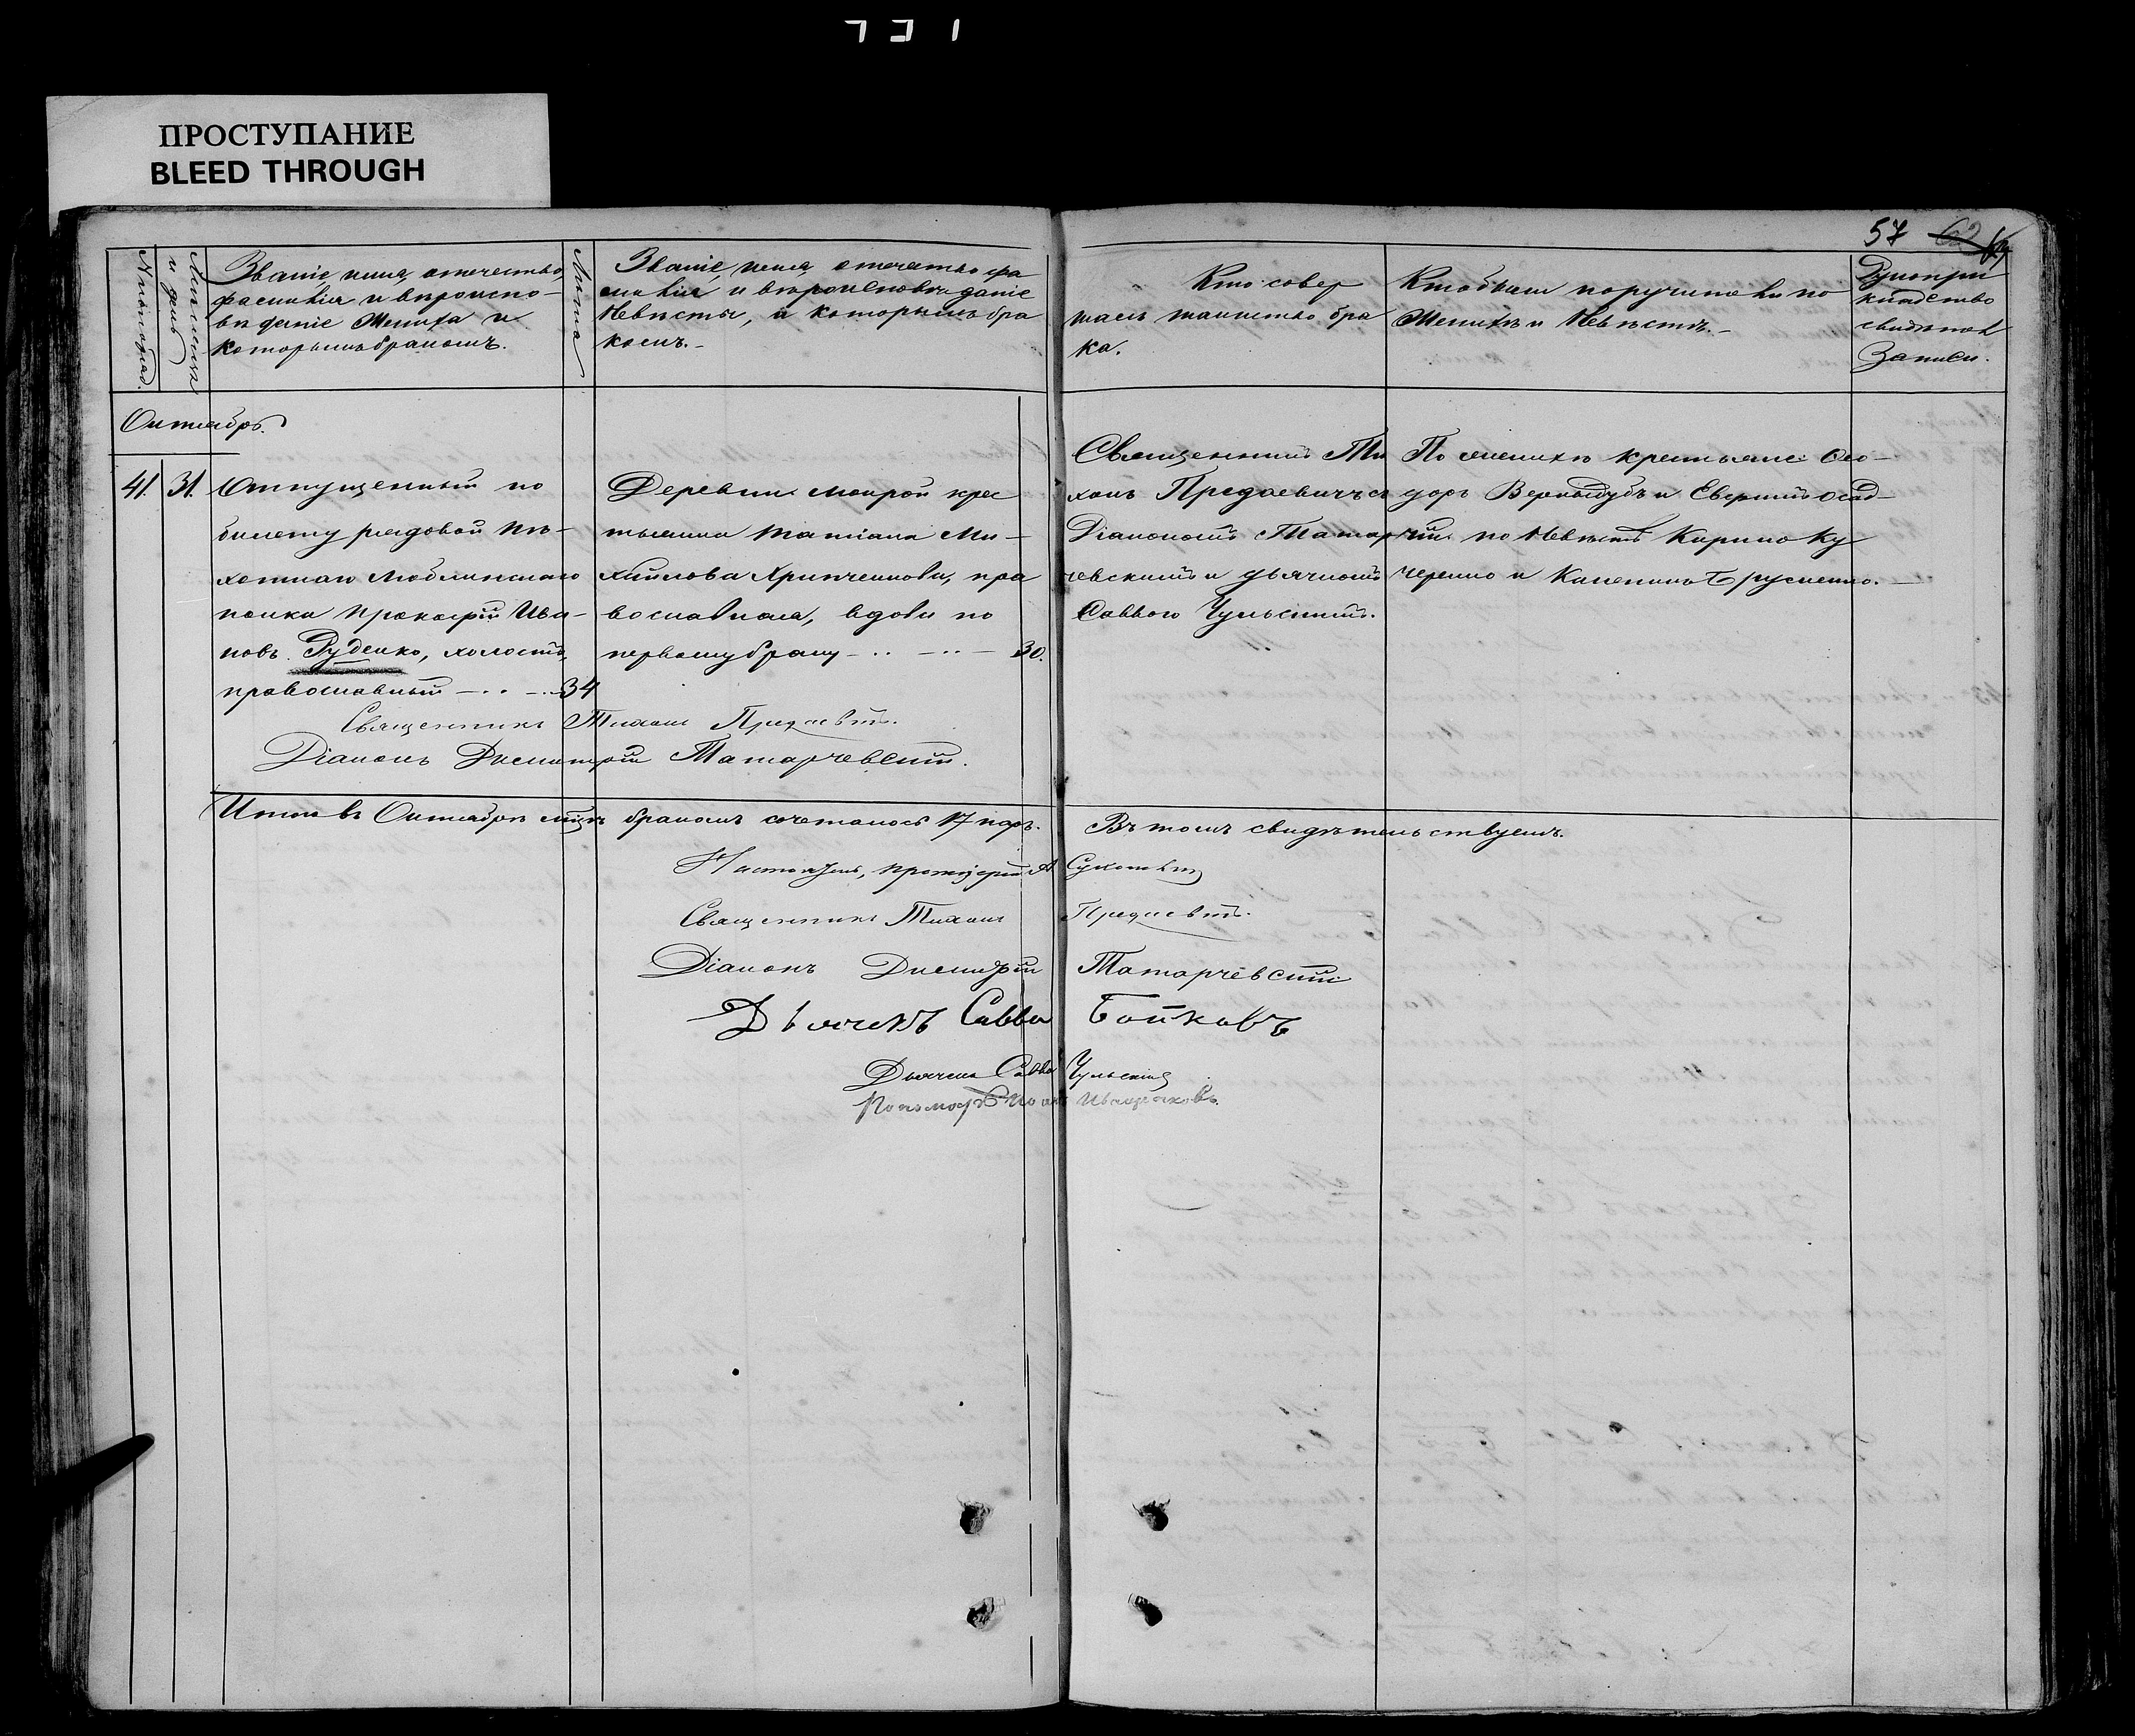 ПРОСТУПАНИЕ
BLEED THROUGH
57
Званіе, имя, отечество,
фамилія и вѣроиспо-
веданіе Жениха и
которымъ бракомъ.
Лѣта
Званіе, имя, отечество фа
милія и вѣроисповѣданіе
Невѣсты, и которымъ бра
комъ.-
Кто совер
шалъ таинство бра
ка.
Кто были поручители по
Женихѣ и Невѣстѣ.-
Рукопри
кладство
свидѣтел
Записи.
Октябрь.
41. 31. Отпущенный по
билету рядовой пѣ-
хотнаго Люблинскаго
полка Прокофій Ива-
новъ Руденко, холостъ,
православный - .. - .. 34
Деревни Мокрой крес
тьянка Татіана Ми-
хаилова Хрипченкова, пра
вославная, вдова по
первому браку - .. - .. - 30.
Священникъ Ти
хонъ Предаевичъ съ
Діакономъ Татар
чевскимъ и дьячкомъ
Саввою Чульскимъ.
По женихѣ крестьяне Ѳео-
доръ Верныдубъ и Евфимій Осад-
чій по Невѣстѣ Кирило Ку
черенко и
Священникъ Тихонъ Предаевичъ.
Діаконъ Димитрій Татарчевскій.
Итого въ Октябрѣ мцѣ бракомъ сочеталось 17 паръ. Въ томъ свидѣтельствуемъ.
Настоятель, протоіерей А.
Священникъ Тихонъ Предаевичъ.
Діаконъ Димитрій Татарчевскій
Дьячекъ Савва Бойковъ
Дьячекъ Савва Чульскій
Пономарь